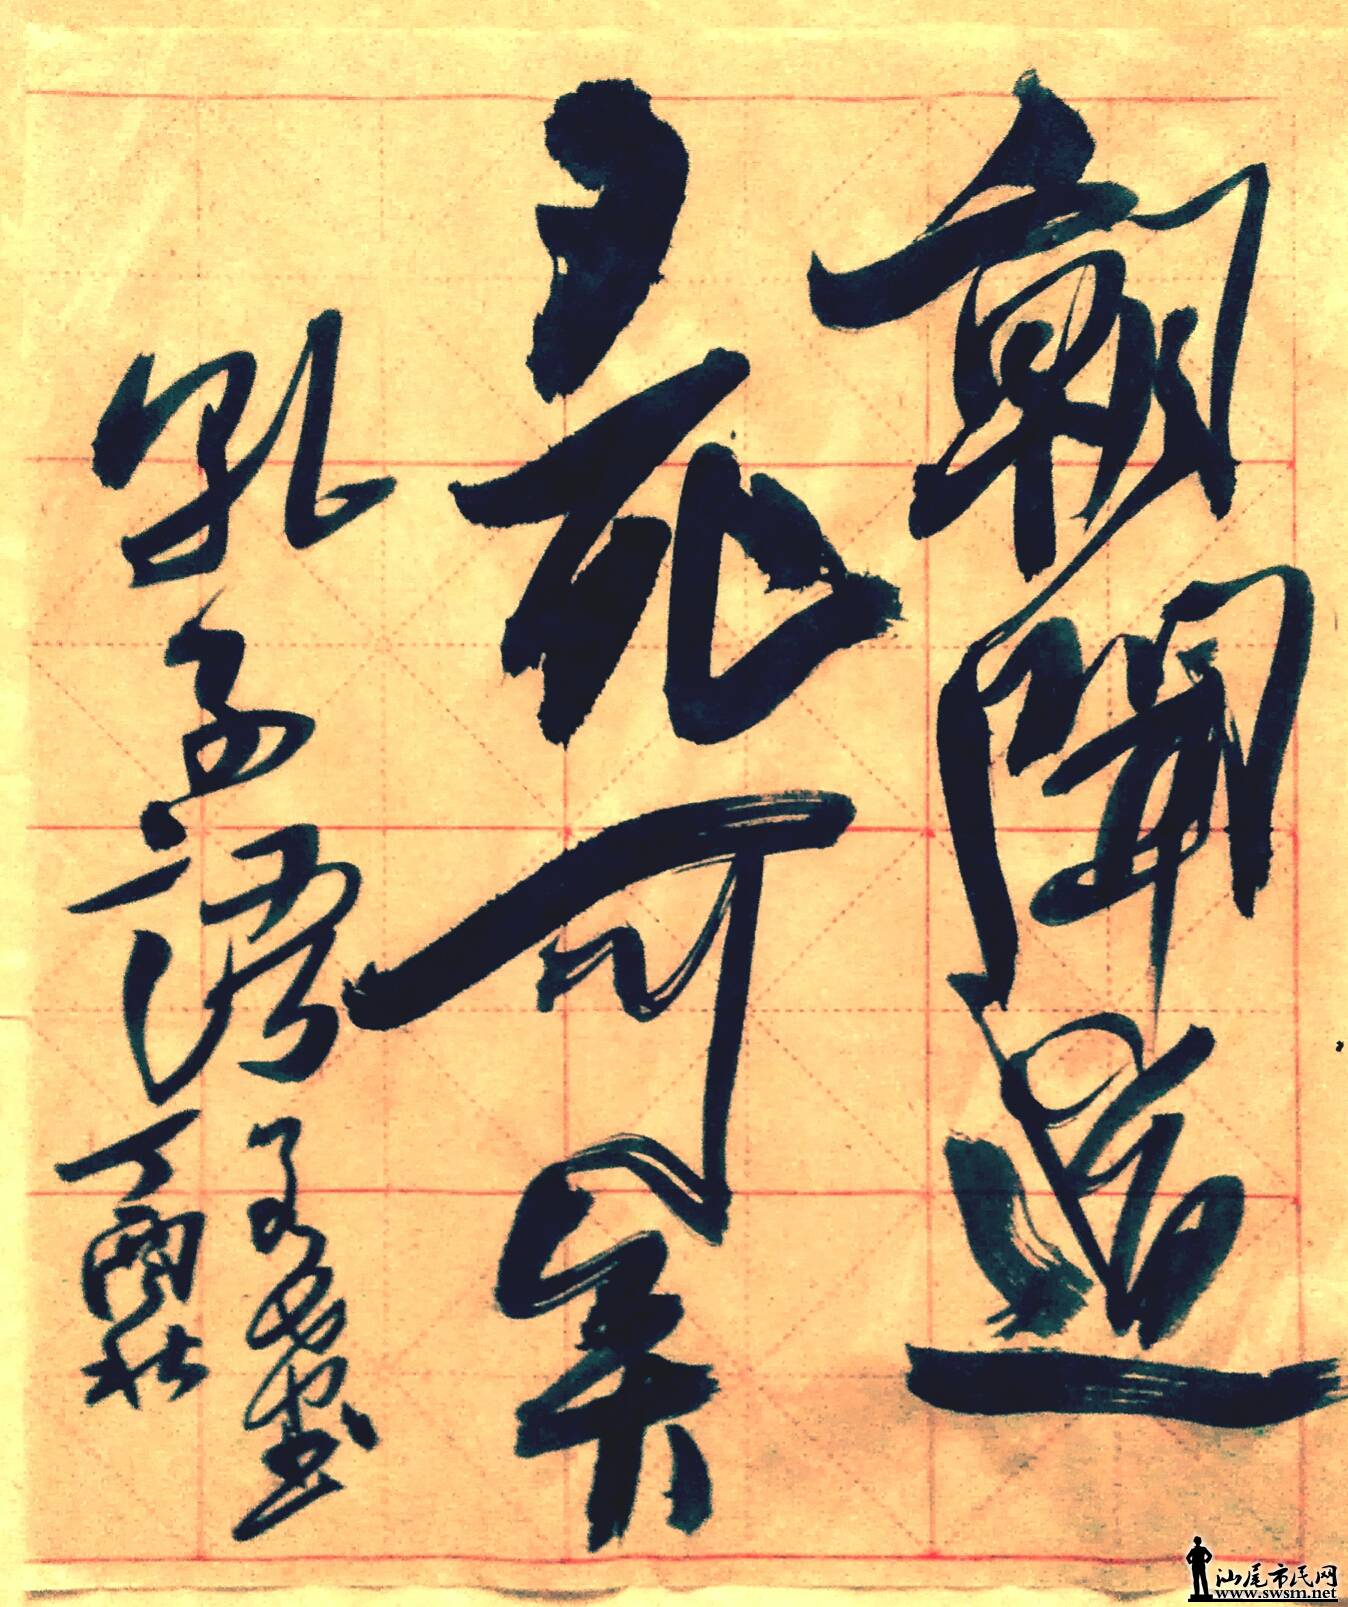 朝聞道
夕死可矣
孔子語
丁酉秋
汕尾市民网
www.swsm.net